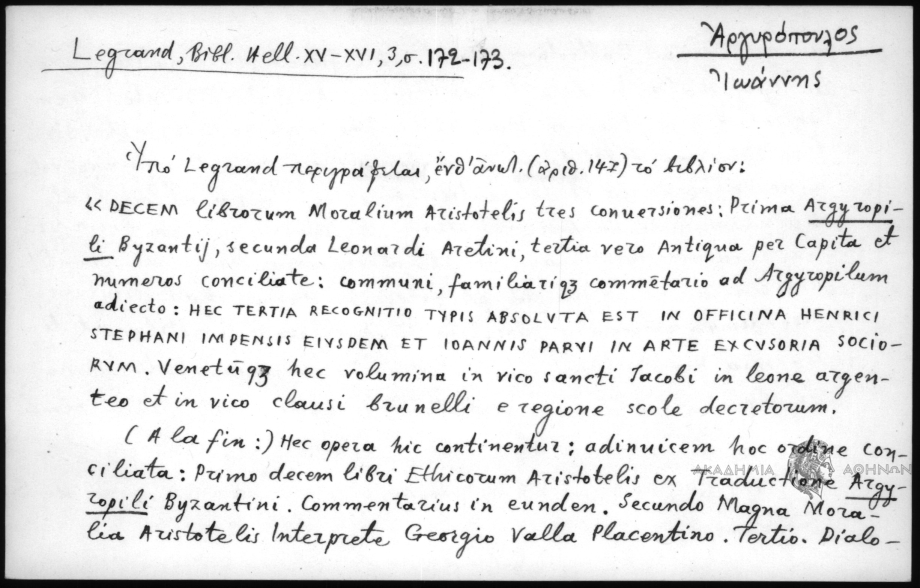 Legrand, Bibl. Hell. XV-XVI, 3, σ. 172-173.
Ἀργυρόπουλος
Ἰωάννης
Ὑπό Legrand περιγράφεται, ἔνθ' ἀνωτ. (ἀριθ. 147) τό βιβλίον:
« DECEM librorum Moralium Aristotelis tres conuersiones: Prima Argyropi-
li Byzantij, secunda Leonardi Aretini, tertia vero Antiqua per Capita et
numeros conciliate: communi, familiariqꝫ commētario ad Argyropilum
adiecto: HEC TERTIA RECOGNITIO TYPIS ABSOLVTA EST IN OFFICINA HENRICI
STEPHANI IMPENSIS EIVSDEM ET IOANNIS PARVI IN ARTE EXCVSORIA SOCIO-
RVM. Venetūqꝫ hec volumina in vico sancti Iacobi in leone argen-
teo et in vico clausi brunelli e regione scole decretorum.
(A la fin:) Hec opera hic continentur; adinuicem hoc ordine con-
ciliata: Primo decem libri Ethicorum Aristotelis ex Traductione Argy-
ropili Byzantini. Commentarius in eunden. Secundo Magna Mora-
lia Aristotelis Interprete Georgio Valla Placentino. Tertio. Dialo-
ΑΚΑΔΗΜΙΑ ΑΘΗΝΩΝ